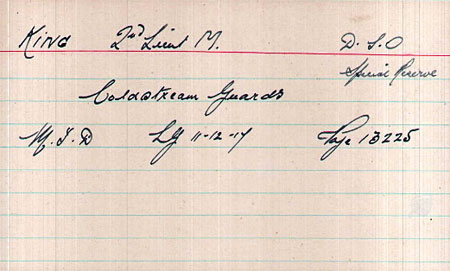 King 2nd Lieut M. D.S.O
Special Reserve
Coldstream Guards
M.I.D LG 11-12-17 Page 13225